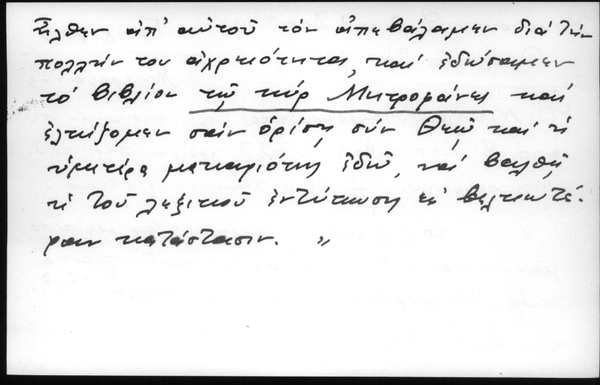 ἦλθεν ἀπ' αὐτοῦ τὸν ἀπεβάλαμεν διὰ τὴν
πολλήν του ἀχρειότητα, καὶ ἐδώσαμεν
τὸ βιβλίον τῷ κὺρ Μητροφάνει καὶ
ἐλπίζομεν σὰν ὁρίσῃ σὺν Θεῷ καὶ ἡ
ὑμετέρα μακαριότης ἐδῶ, νὰ βαλθῇ
ἡ τοῦ λεξικοῦ ἐντύπωσις εἰς βελτιωτέ-
ραν κατάστασιν. "